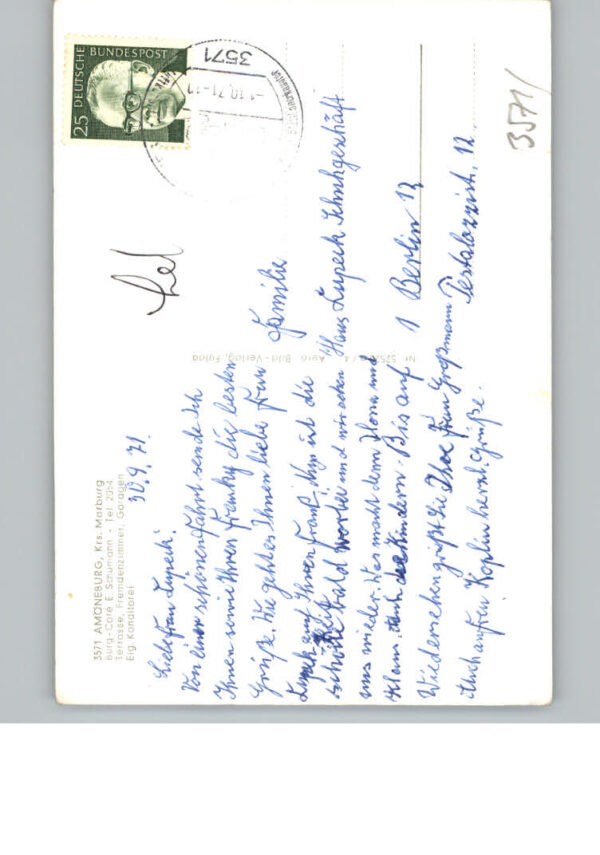 3571 AMÖNEBURG, Krs. Marburg
Burg-Café E. Schumann - Tel. 2054
Terrasse, Fremdenzimmer, Garagen
Eig. Konditorei
30.9.71.
Liebe Frau Lupeck!
Von einer schönen Fahrt sende Ich
Ihnen sowie Ihren Franky die besten
Grüße. Wie geht es Ihnen liebe Frau
Lupeck und Ihren Frank. Nun ist die
schöne Zeit bald vorbei und wir sehen
uns wieder. Was macht denn Ilona und
Klaus. Auch der Kindern. Bis auf
Wiedersehen grüßt Sie Ihre Frau Großmann
Auch an Frau Koplin herzl. Grüße.
Nr. Agra Bild-Verlag, Fulda
Familie
Hans Lupeck Schuhgeschäft
1 Berlin 12
Pestalozzistr. 12
DEUTSCHE BUNDESPOST
25
3571
-1.10.71-11
3571/